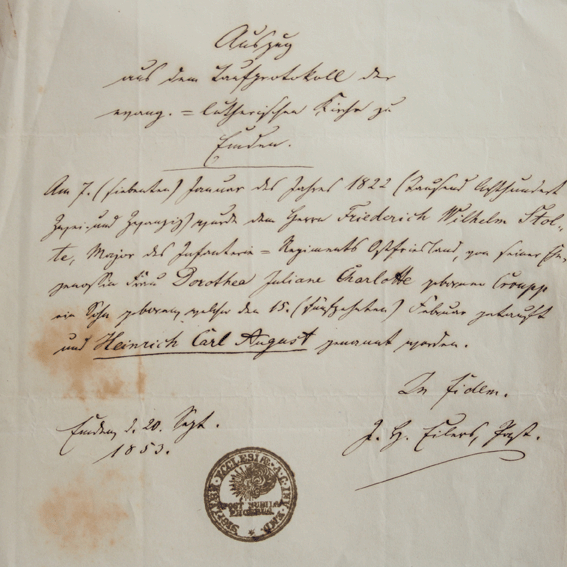 Auszug
aus dem Taufprotokoll der
evang. = lutherischen Kirche zu
Emden.
Am 7. (siebenten) Januar des Jahres 1822 (tausend Achthundert
Zwei und Zwanzig) wurde dem Herrn Friederich Wilhelm Stol-
te, Major des Infanterie = Regiments Ostfriesland, von seiner Ehe-
genossin Frau Dorothea Juliane Charlotte geborenen
ein Sohn geboren, welcher den 15. (fünfzehnten) Februar getauft
und Heinrich Carl August genannt worden.
In fidem.
Emden d. 20. Sept.
1853.
J. H. Eilers, Past.
ECCLESIÆ
POST NUBILA